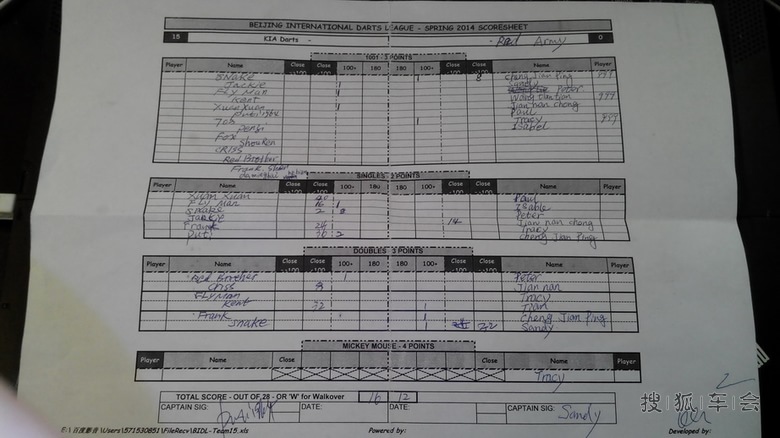 BEIJING INTERNATIONAL DARTS LEAGUE - SPRING 2014 SCORESHEET
15 KIA Darts - - Red Army 0
1001 - 3 POINTS
Player Name Close Close 100+ 180 180 100+ Close Close Name Player
SNAKE 1 8 Cheng Jian Ping
Jackie 1 Sandy
FLY Man 1 Peter
Kent
Yuan Xuan 1 Jian nan chong
Paul
Job 1 Tracy
Isabel
Fox
ShouRen
CRISS
Red Brother
Frank
SINGLES - 2 POINTS
Player Name Close Close 100+ 180 180 100+ Close Close Name Player
Xuan Xuan Paul
FLY Man 16 1 Isable
Snake 2 Peter
Jackie 14 Jian nan chong
Frank 24 Tracy
20 2 Cheng Jian Ping
DOUBLES - 3 POINTS
Player Name Close Close 100+ 180 180 100+ Close Close Name Player
Red Brother 1 Peter
Criss 8 Jian nan
FLY Man Tracy
Kent 32 1 Tian
Frank 1 Cheng Jian Ping
Snake 1 22 Sandy
MICKEY MOUSE - 4 POINTS
Player Name Close Close Name Player
Tracy
TOTAL SCORE - OUT OF 28 - OR 'W' for Walkover 16 12
CAPTAIN SIG: DATE: DATE: CAPTAIN SIG: Sandy
搜狐车会
E:\百度影音\Users\571530851\FileRecv\BIDL-Team15.xls Powered by: Developed by: